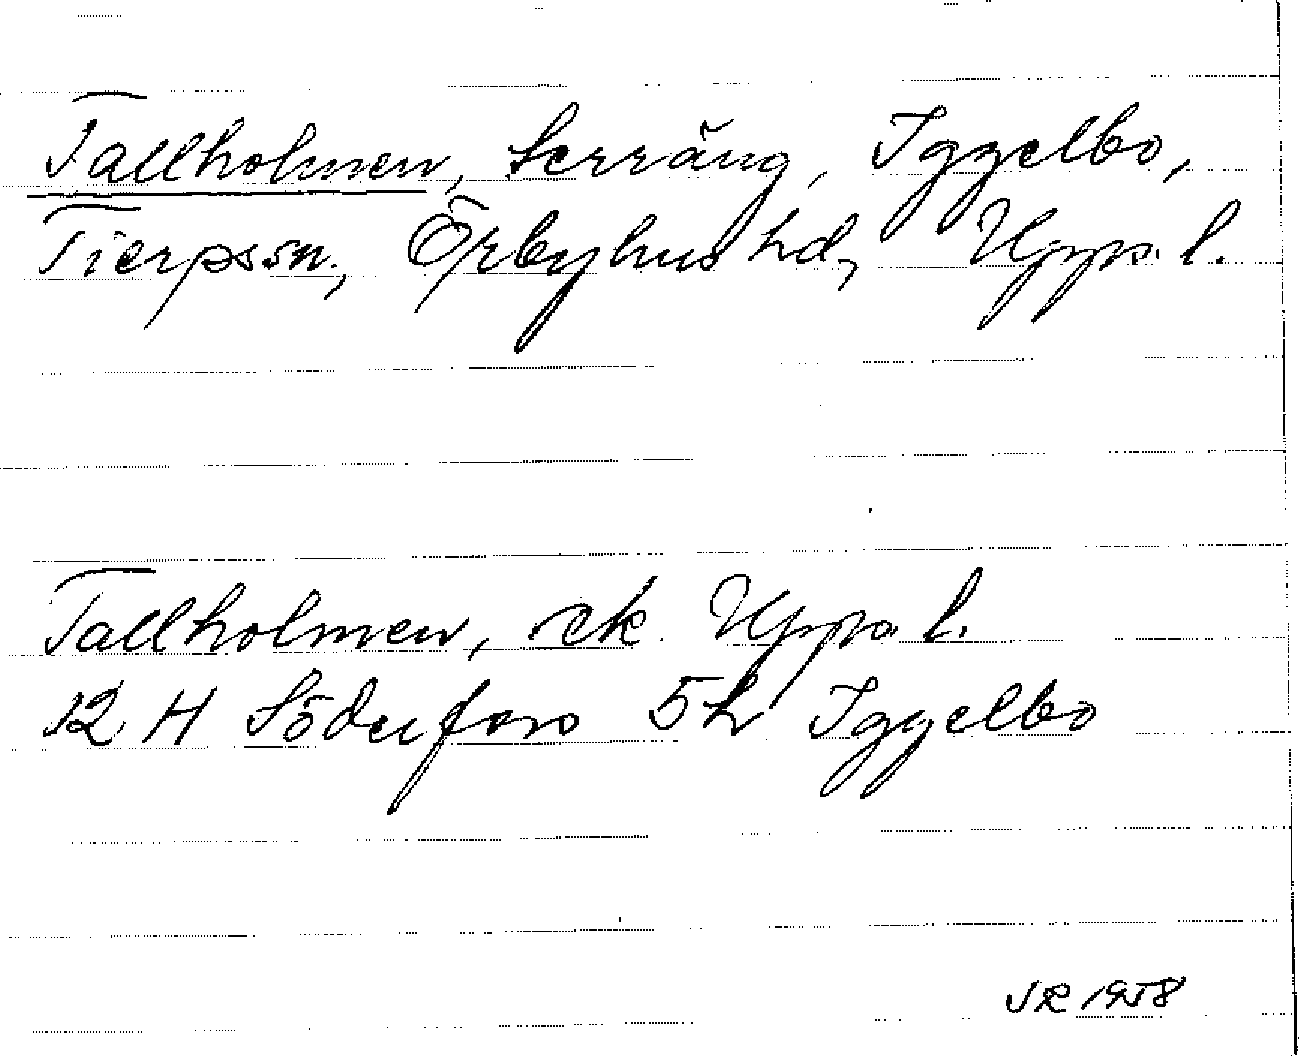 Tallholmen, terräng, Iggelbo,
Tierps sn., Örbyhus hd, Upps. l.
Tallholmen, ek. Upps. l.
12 H Söderfors 5h Iggelbo
JR 1958